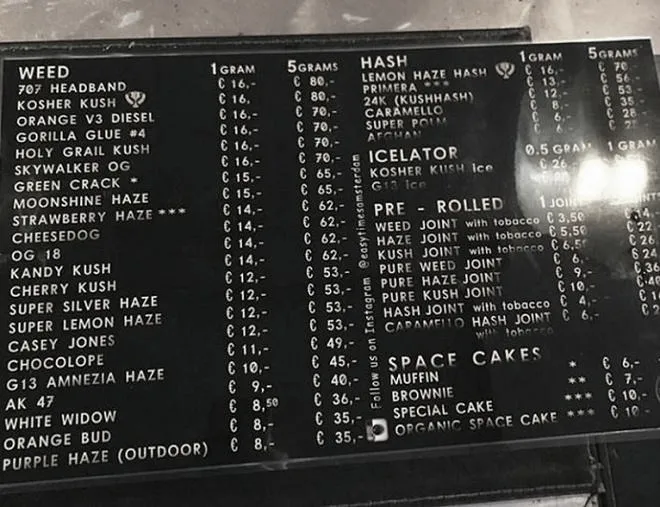 WEED 1 GRAM 5 GRAMS
707 HEADBAND € 16,- € 80,-
KOSHER KUSH € 16,- € 80,-
ORANGE V3 DIESEL € 16,- € 70,-
GORILLA GLUE #4 € 16,- € 70,-
HOLY GRAIL KUSH € 16,- € 70,-
SKYWALKER OG € 16,- € 70,-
GREEN CRACK * € 15,- € 65,-
MOONSHINE HAZE € 15,- € 65,-
STRAWBERRY HAZE *** € 14,- € 62,-
CHEESEDOG € 14,- € 62,-
OG 18 € 14,- € 62,-
KANDY KUSH € 14,- € 62,-
CHERRY KUSH € 12,- € 53,-
SUPER SILVER HAZE € 12,- € 53,-
SUPER LEMON HAZE € 12,- € 53,-
CASEY JONES € 12,- € 53,-
CHOCOLOPE € 11,- € 49,-
G13 AMNEZIA HAZE € 10,- € 45,-
AK 47 € 9,- € 40,-
WHITE WIDOW € 8,50 € 36,-
ORANGE BUD € 8,- € 35,-
PURPLE HAZE (OUTDOOR) € 8,- € 35,-
Follow us on Instagram @easytimesamsterdam
HASH 1 GRAM 5 GRAMS
LEMON HAZE HASH € 16,- € 70
PRIMERA *** € 13,- € 56,-
24K (KUSHHASH) € 12,- € 53,-
CARAMELLO € 8,- € 35
SUPER POLM € 6,- € 28
AFGHAN € 6,- €
ICELATOR 0.5 GRAM 1 GRAM
KOSHER KUSH ice € 26
G13 ice
PRE - ROLLED 1
WEED JOINT with tobacco € 3,50
HAZE JOINT with tobacco € 5,50
KUSH JOINT with tobacco
PURE WEED JOINT € 6,-
PURE HAZE JOINT € 9,-
PURE KUSH JOINT € 10,-
HASH JOINT with tobacco € 4,-
CARAMELLO HASH JOINT € 6,-
with tobacco
SPACE CAKES
MUFFIN * € 6,-
BROWNIE ** € 7,-
SPECIAL CAKE *** € 10,-
ORGANIC SPACE CAKE *** € 10